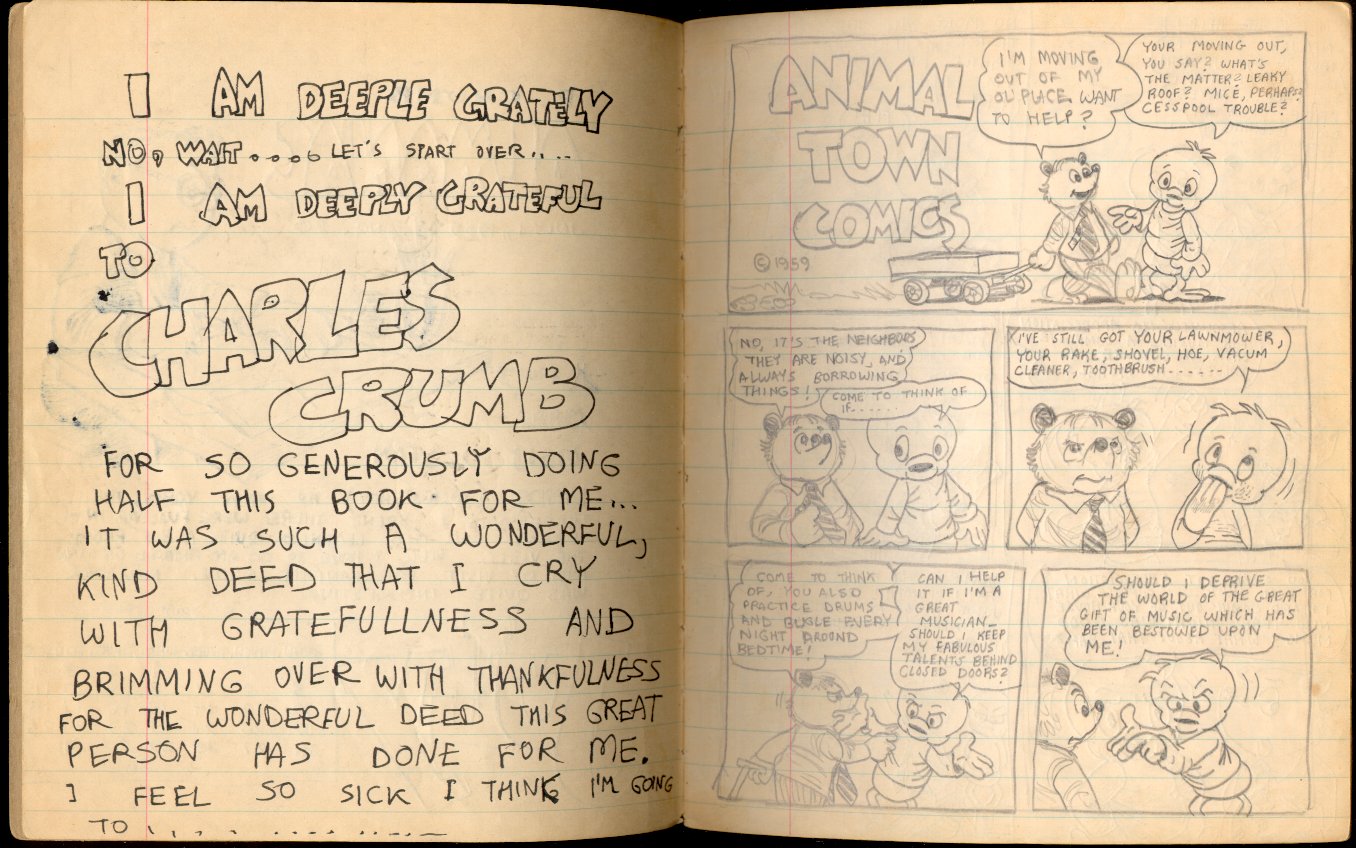 I AM DEEPLE GRATELY
NO, WAIT..... LET'S START OVER....
I AM DEEPLY GRATEFUL
TO
CHARLES
CRUMB
FOR SO GENEROUSLY DOING
HALF THIS BOOK FOR ME...
IT WAS SUCH A WONDERFUL,
KIND DEED THAT I CRY
WITH GRATEFULLNESS AND
BRIMMING OVER WITH THANKFULNESS
FOR THE WONDERFUL DEED THIS GREAT
PERSON HAS DONE FOR ME.
I FEEL SO SICK I THINK I'M GOING
TO
ANIMAL
TOWN
COMICS
© 1959
I'M MOVING
OUT OF MY
OL' PLACE WANT
TO HELP?
YOUR MOVING OUT,
YOU SAY? WHAT'S
THE MATTER? LEAKY
ROOF? MICE, PERHAPS?
CESSPOOL TROUBLE?
NO, IT'S THE NEIGHBORS
THEY ARE NOISY, AND
ALWAYS BORROWING
THINGS!
COME TO THINK OF
IT......
I'VE STILL GOT YOUR LAWNMOWER,
YOUR RAKE, SHOVEL, HOE, VACUM
CLEANER, TOOTHBRUSH......
COME TO THINK
OF, YOU ALSO
PRACTICE DRUMS
AND BUGLE EVERY
NIGHT AROUND
BEDTIME!
CAN I HELP
IT IF I'M A
GREAT
MUSICIAN_
SHOULD I KEEP
MY FABULOUS
TALENTS BEHIND
CLOSED DOORS?
SHOULD I DEPRIVE
THE WORLD OF THE GREAT
GIFT OF MUSIC WHICH HAS
BEEN BESTOWED UPON
ME!